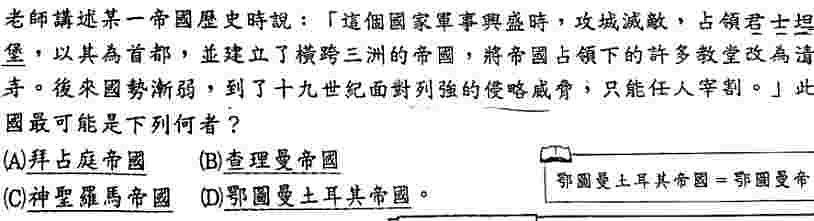 老師講述某一帝國歷史時說：「這個國家軍事興盛時，攻城滅敵，占領君士坦
堡，以其為首都，並建立了橫跨三洲的帝國，將帝國占領下的許多教堂改為清
寺。後來國勢漸弱，到了十九世紀面對列強的侵略威脅，只能任人宰割。」此
國最可能是下列何者？
(A)拜占庭帝國 (B)查理曼帝國
(C)神聖羅馬帝國 (D)鄂圖曼土耳其帝國。
鄂圖曼土耳其帝國＝鄂圖曼帝